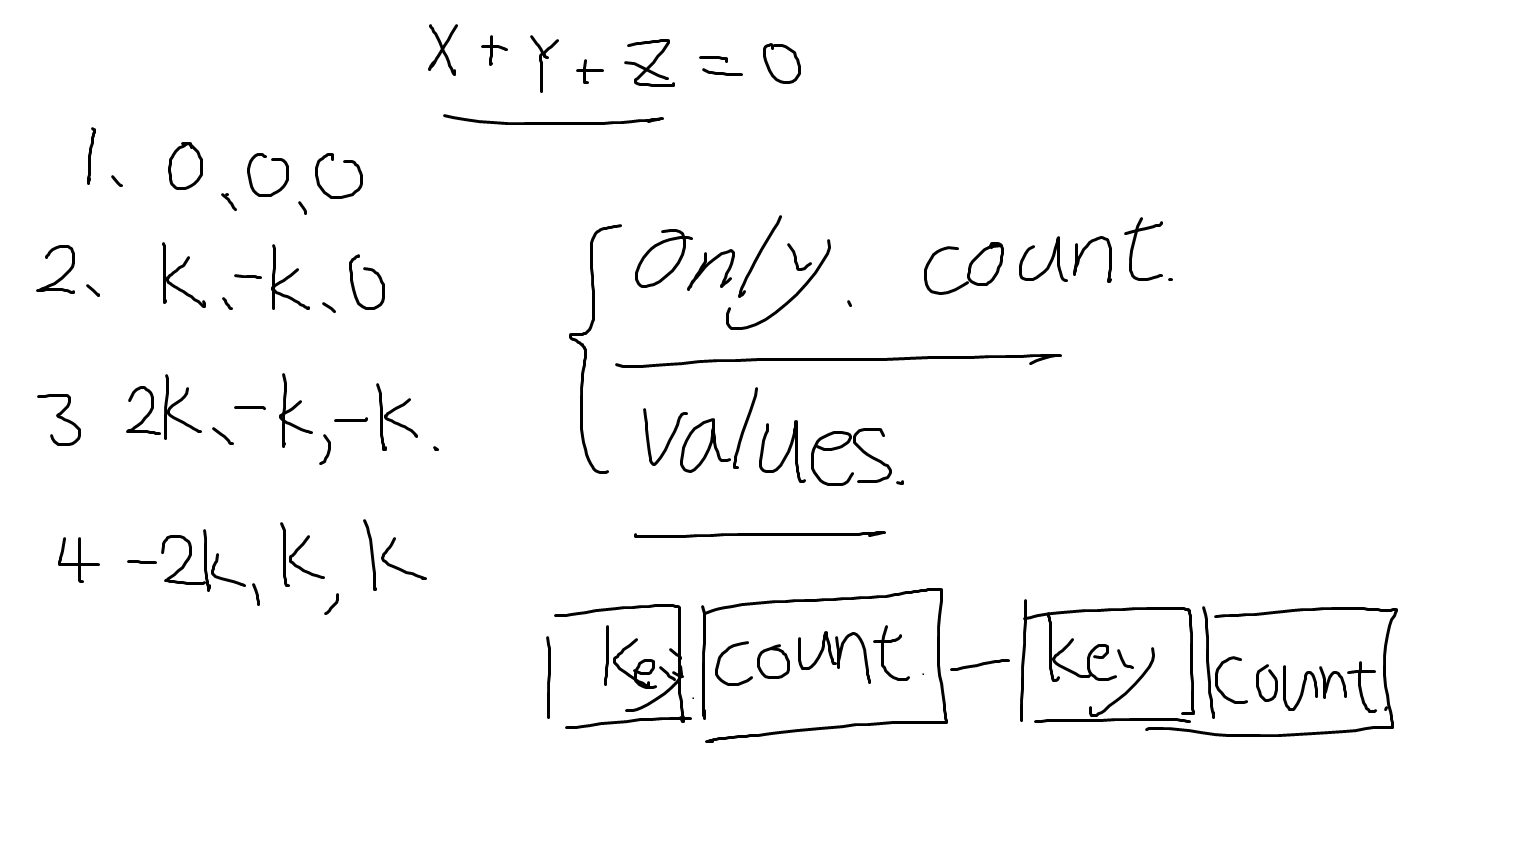 X+Y+Z=0
1、0、0、0
2、k、-k、0
3 2k、-k,-k.
4 -2k, k, k
only. count.
values.
key count. — key count.